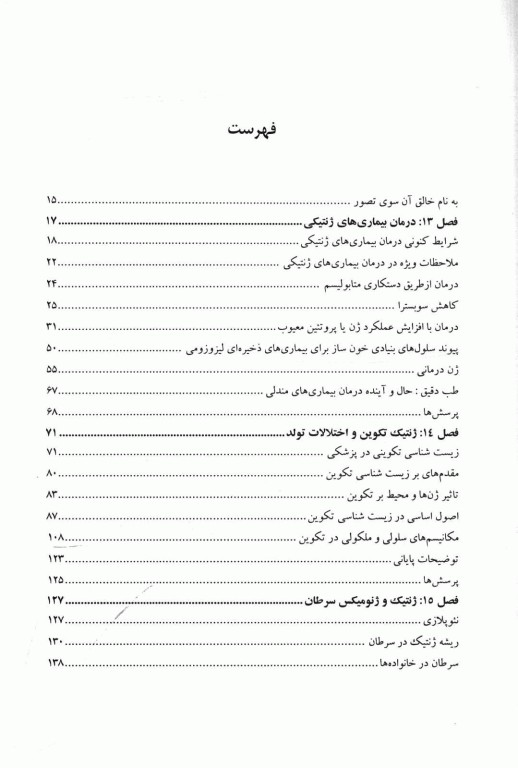 فهرست
به نام خالق آن سوی تصور ..... ۱۵
فصل ۱۳: درمان بیماری‌های ژنتیکی ..... ۱۷
شرایط کنونی درمان بیماری‌های ژنتیکی ..... ۱۸
ملاحظات ویژه در درمان بیماری‌های ژنتیکی ..... ۲۲
درمان ازطریق دستکاری متابولیسم ..... ۲۴
کاهش سوبسترا ..... ۲۵
درمان با افزایش عملکرد ژن یا پروتئین معیوب ..... ۳۱
پیوند سلول‌های بنیادی خون ساز برای بیماری‌های ذخیره‌ای لیزوزومی ..... ۵۰
ژن درمانی ..... ۵۵
طب دقیق : حال و آینده درمان بیماری‌های مندلی ..... ۶۷
پرسش‌ها ..... ۶۸
فصل ۱۴: ژنتیک تکوین و اختلالات تولد ..... ۷۱
زیست شناسی تکوینی در پزشکی ..... ۷۱
مقدمه‌ای بر زیست شناسی تکوین ..... ۸۰
تاثیر ژن‌ها و محیط بر تکوین ..... ۸۳
اصول اساسی در زیست شناسی تکوین ..... ۸۷
مکانیسم‌های سلولی و ملکولی در تکوین ..... ۱۰۸
توضیحات پایانی ..... ۱۲۳
پرسش‌ها ..... ۱۲۵
فصل ۱۵: ژنتیک و ژنومیکس سرطان ..... ۱۲۷
نئوپلازی ..... ۱۲۷
ریشه ژنتیک در سرطان ..... ۱۳۰
سرطان در خانواده‌ها ..... ۱۳۸